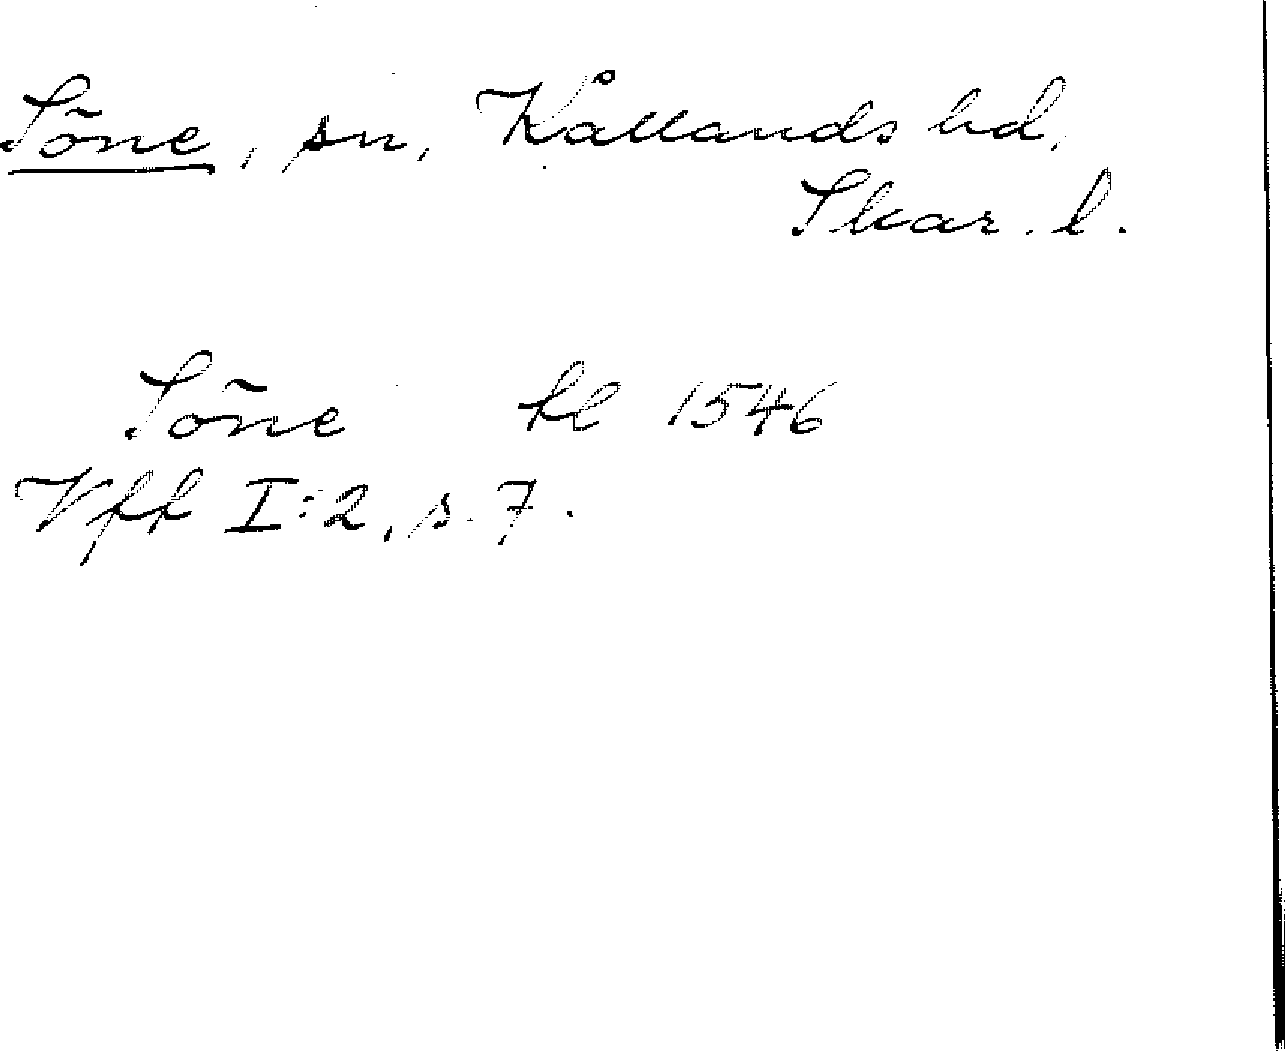 Söne, sn, Kållands hd,
Skar. l.
Söne kl 1546
Vff I:2, s. 7.